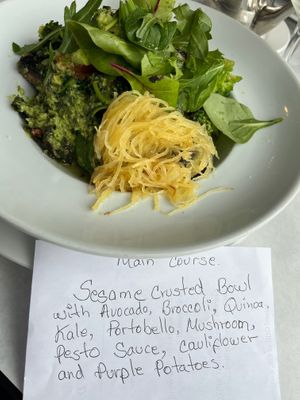 Main Course.
Sesame Crusted Bowl
with Avocado, Broccoli, Quinoa,
Kale, Portobello, Mushroom,
Pesto Sauce, cauliflower
and Purple Potatoes.